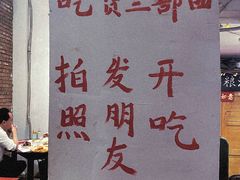 吃货三部曲
拍照
发朋友
开吃
粮